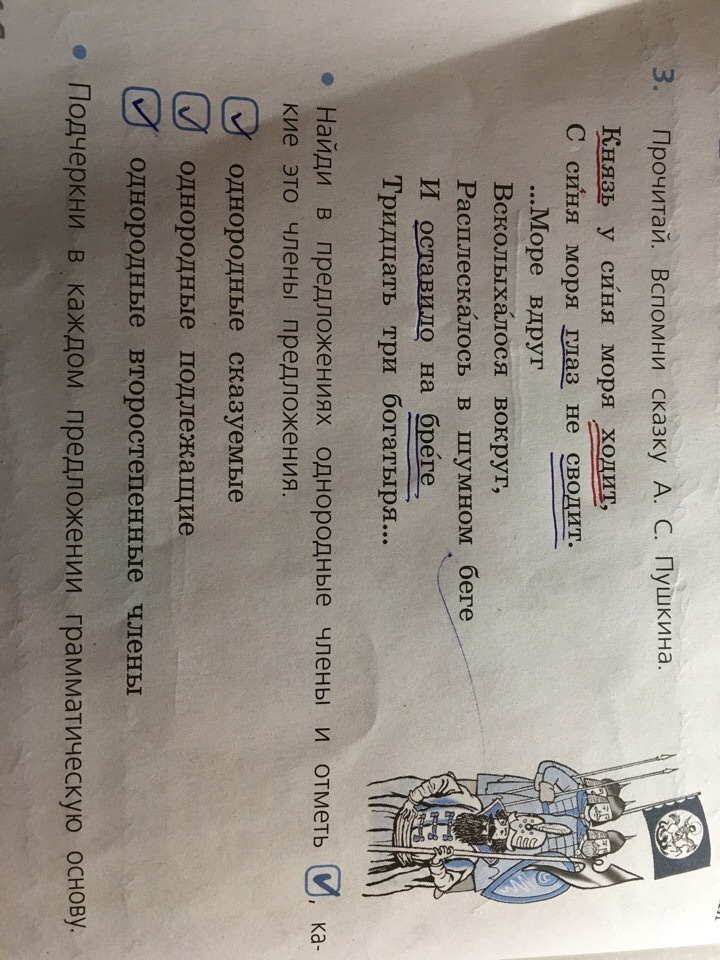 3. Прочитай. Вспомни сказку А. С. Пушкина.
Князь у си́ня моря ходит,
С си́ня моря глаз не сводит.
...Море вдруг
Всколыха́лося вокруг,
Расплеска́лось в шумном беге
И оставило на бре́ге
Тридцать три богатыря...
• Найди в предложениях однородные члены и отметь ✓, ка-
кие это члены предложения.
✓ однородные сказуемые
✓ однородные подлежащие
✓ однородные второстепенные члены
• Подчеркни в каждом предложении грамматическую основу.